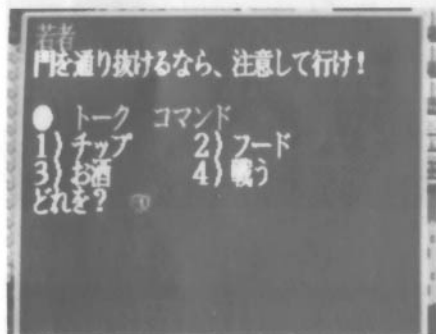 若者
門を通り抜けるなら、注意して行け！
● トーク コマンド
1）チップ 2）フード
3）お酒 4）戦う
どれを？